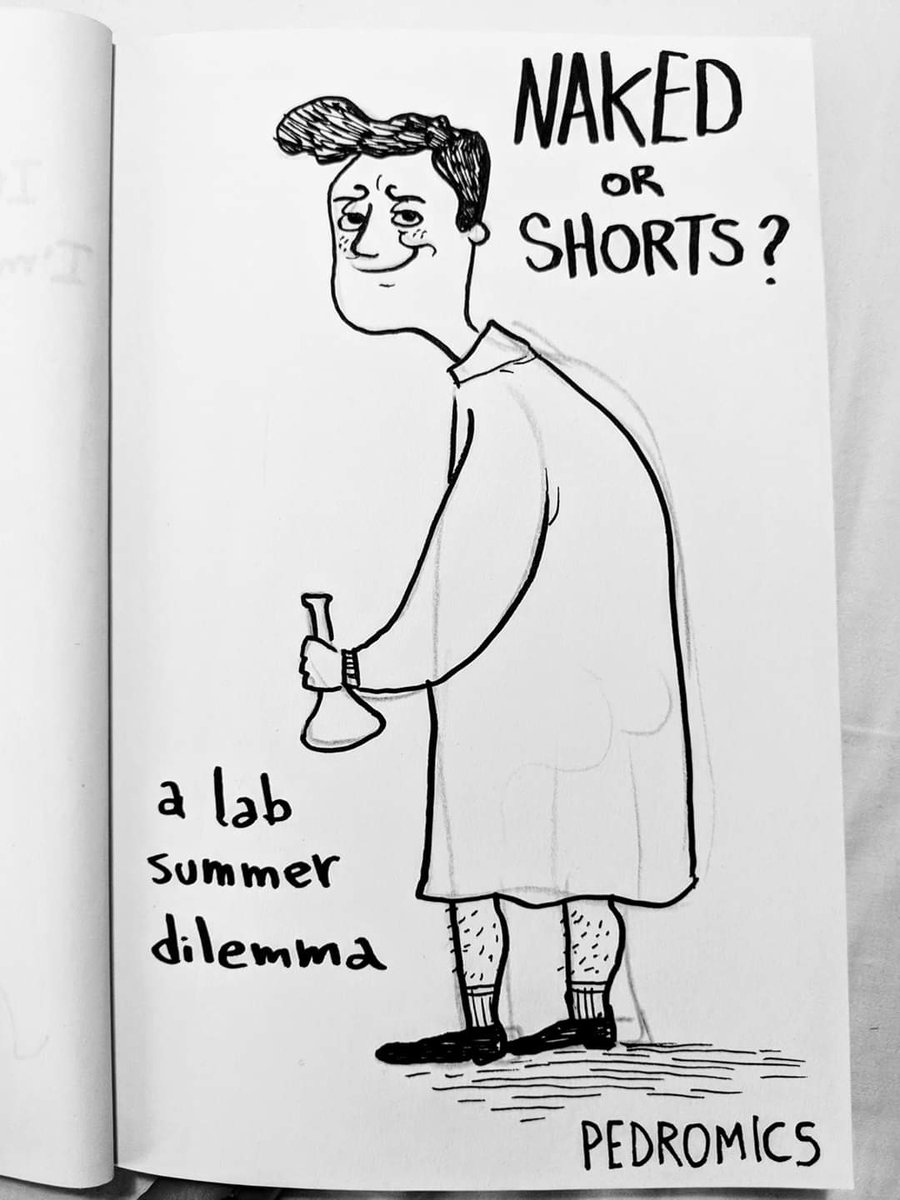 NAKED
OR
SHORTS?
a lab
summer
dilemma
PEDROMICS
I'm